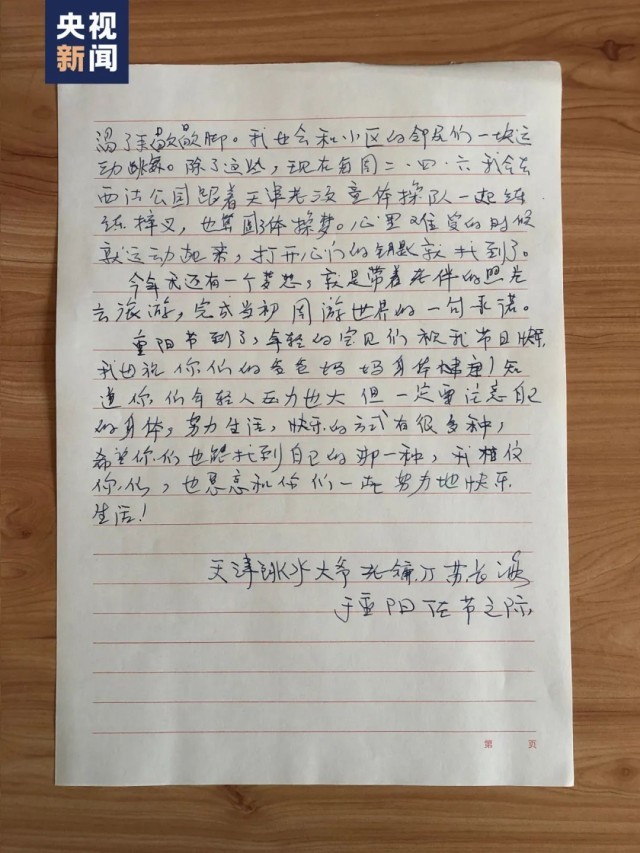 央视
新闻
渴了来歇歇脚。我也会和小区的邻居们一块运
动跳舞。除了这些，现在每周二·四·六我会去
西沽公园跟着天津老顽童体操队一起练
练，也算圆了体操梦。心里难受的时候
就运动起来，打开心门的钥匙就找到了。
今年我还有一个梦想，就是带着老伴的照片
去旅游，完成当初周游世界的一句承诺。
重阳节到了，年轻的宝贝们祝我节日快乐，
我也祝你们的爸爸妈妈身体健康！知
道你们年轻人压力也大但一定要注意自己
的身体，努力生活，快乐的方式有很多种，
希望你们也能找到自己的那一种，我相信
你们，也愿意和你们一起努力地快乐
生活！
天津跳水大爷 苏长海
于重阳佳节之际，
第 页